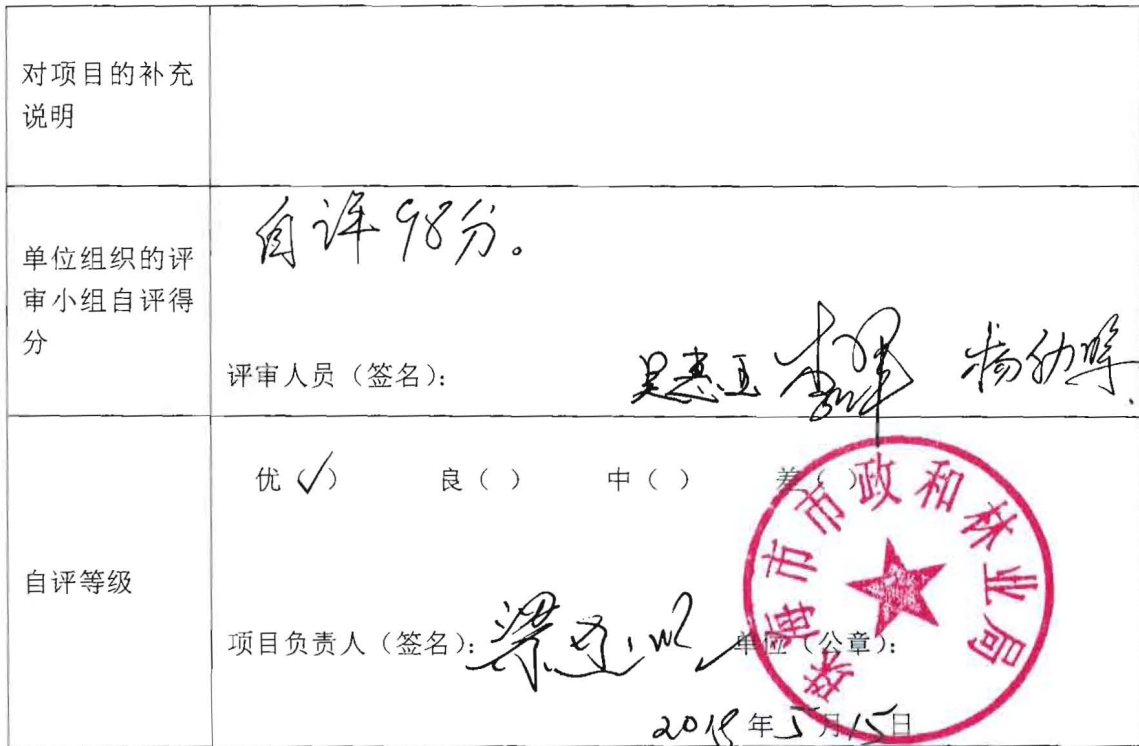 对项目的补充
说明
单位组织的评
审小组自评得
分
自评98分。
评审人员（签名）：
自评等级
优（✓） 良（ ） 中（ ） 差（ ）
项目负责人（签名）： 单位（公章）：
珠海市市政和林业局
年5月15日